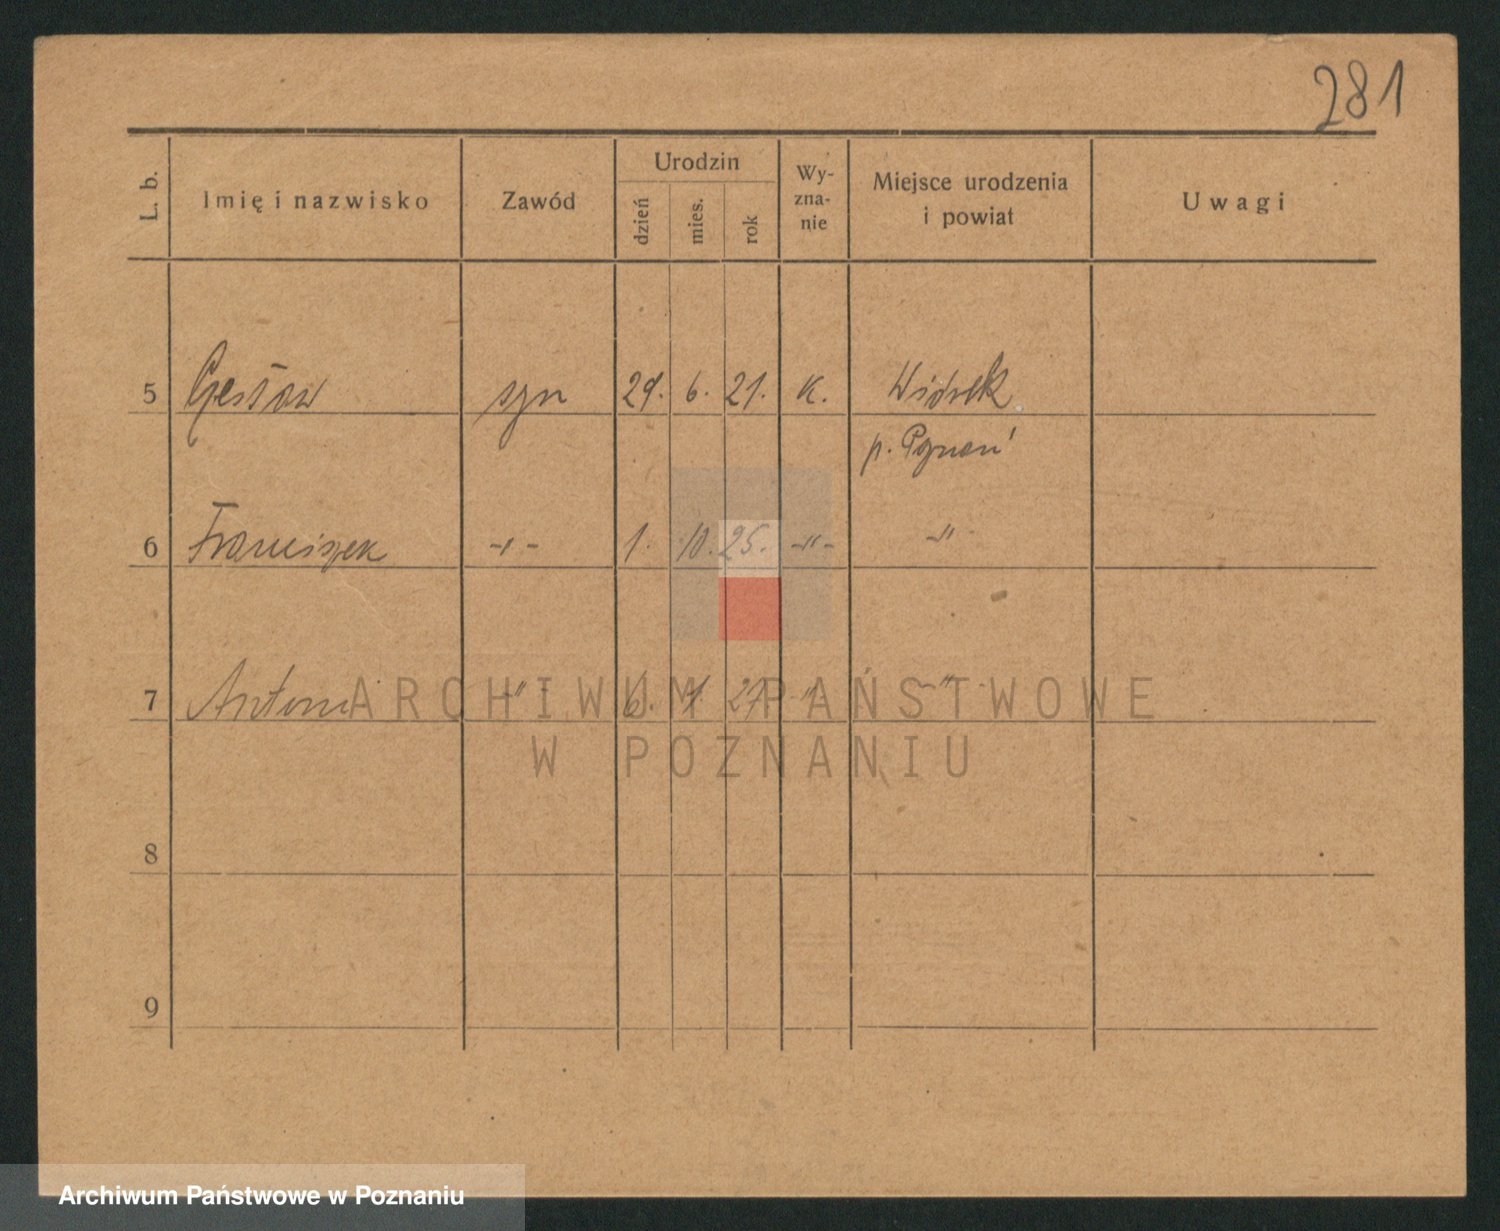 281
L. b. Imię i nazwisko Zawód Urodzin dzień mies. rok Wy-zna-nie Miejsce urodzenia i powiat Uwagi
5 syn 29. 6. 21. K. Wiórek
p. Poznań
6 Franciszek -"- 1. 10. 25. -"- -"-
7 Antoni -"- 6. 1. 27 -"- -"-
8
9
ARCHIWUM PAŃSTWOWE
W POZNANIU
Archiwum Państwowe w Poznaniu